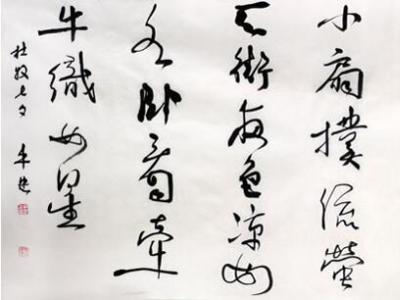 小扇撲流螢
天街夜色涼如
水卧看牽
牛織女星
杜牧七夕